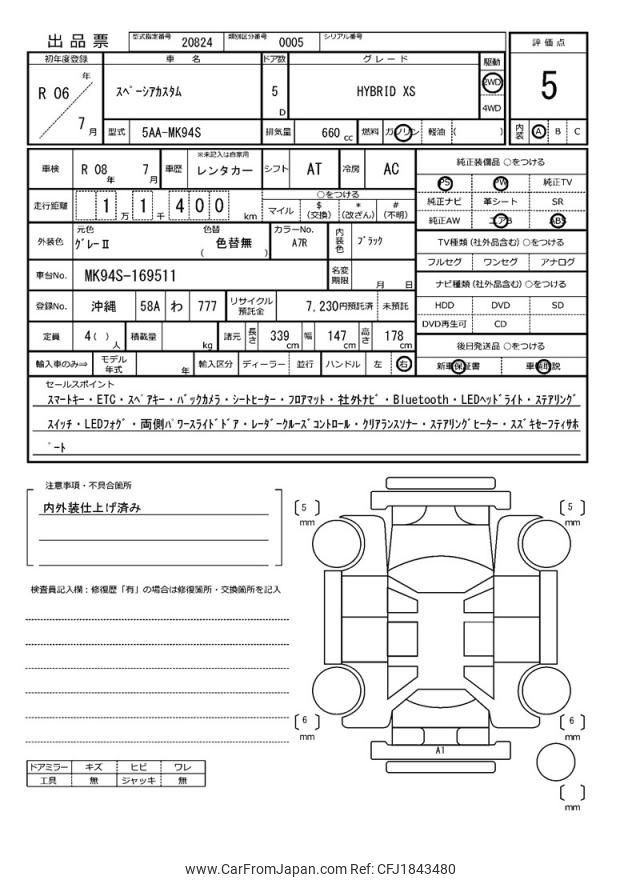 出品票
型式指定番号 20824 類別区分番号 0005 シリアル番号
初年度登録 車名 ドア数 グレード 駆動 評価点
R 06 年 7 月
スペーシアカスタム
5 D
HYBRID XS
2WD
4WD
5
型式 5AA-MK94S 排気量 660 cc 燃料 ガソリン 軽油 ( )
内装 A B C
車検 R 08 年 7 月 車歴 ※未記入は自家用 レンタカー シフト AT 冷房 AC
走行距離 1 万 1 千 4 0 0 km
○をつける
マイル $ (交換) * (改ざん) # (不明)
外装色 元色 グレーⅡ 色替 ( 色替無 ) カラーNo. A7R 内装色 ブラック
車台No. MK94S-169511 名変期限 月 日
登録No. 沖縄 58A わ 777 リサイクル預託金 7,230円預託済 未預託
定員 4( ) 人 積載量 kg 諸元 長さ 339 cm 幅 147 cm 高さ 178 cm
輸入車のみ⇒ モデル年式 年 輸入区分 ディーラー 並行 ハンドル 左 右
純正装備品 ○をつける
PS PW 純正TV
純正ナビ 革シート SR
純正AW エアB ABS
TV種類 (社外品含む) ○をつける
フルセグ ワンセグ アナログ
ナビ種類 (社外品含む) ○をつける
HDD DVD SD
DVD再生可 CD
後日発送品 ○をつける
新車保証書 車輌取説
セールスポイント
スマートキー・ETC・スペアキー・バックカメラ・シートヒーター・フロアマット・社外ナビ・Bluetooth・LEDヘッドライト・ステアリング
スイッチ・LEDフォグ・両側パワースライドドア・レーダークルーズコントロール・クリアランスソナー・ステアリングヒーター・スズキセーフティサホ
゜ート
注意事項・不具合箇所
内外装仕上げ済み
検査員記入欄：修復歴「有」の場合は修復箇所・交換箇所を記入
5 mm
5 mm
6 mm
6 mm
A1
mm
ドアミラー キズ ヒビ ワレ
工具 無 ジャッキ 無
www.CarFromJapan.com Ref: CFJ1843480